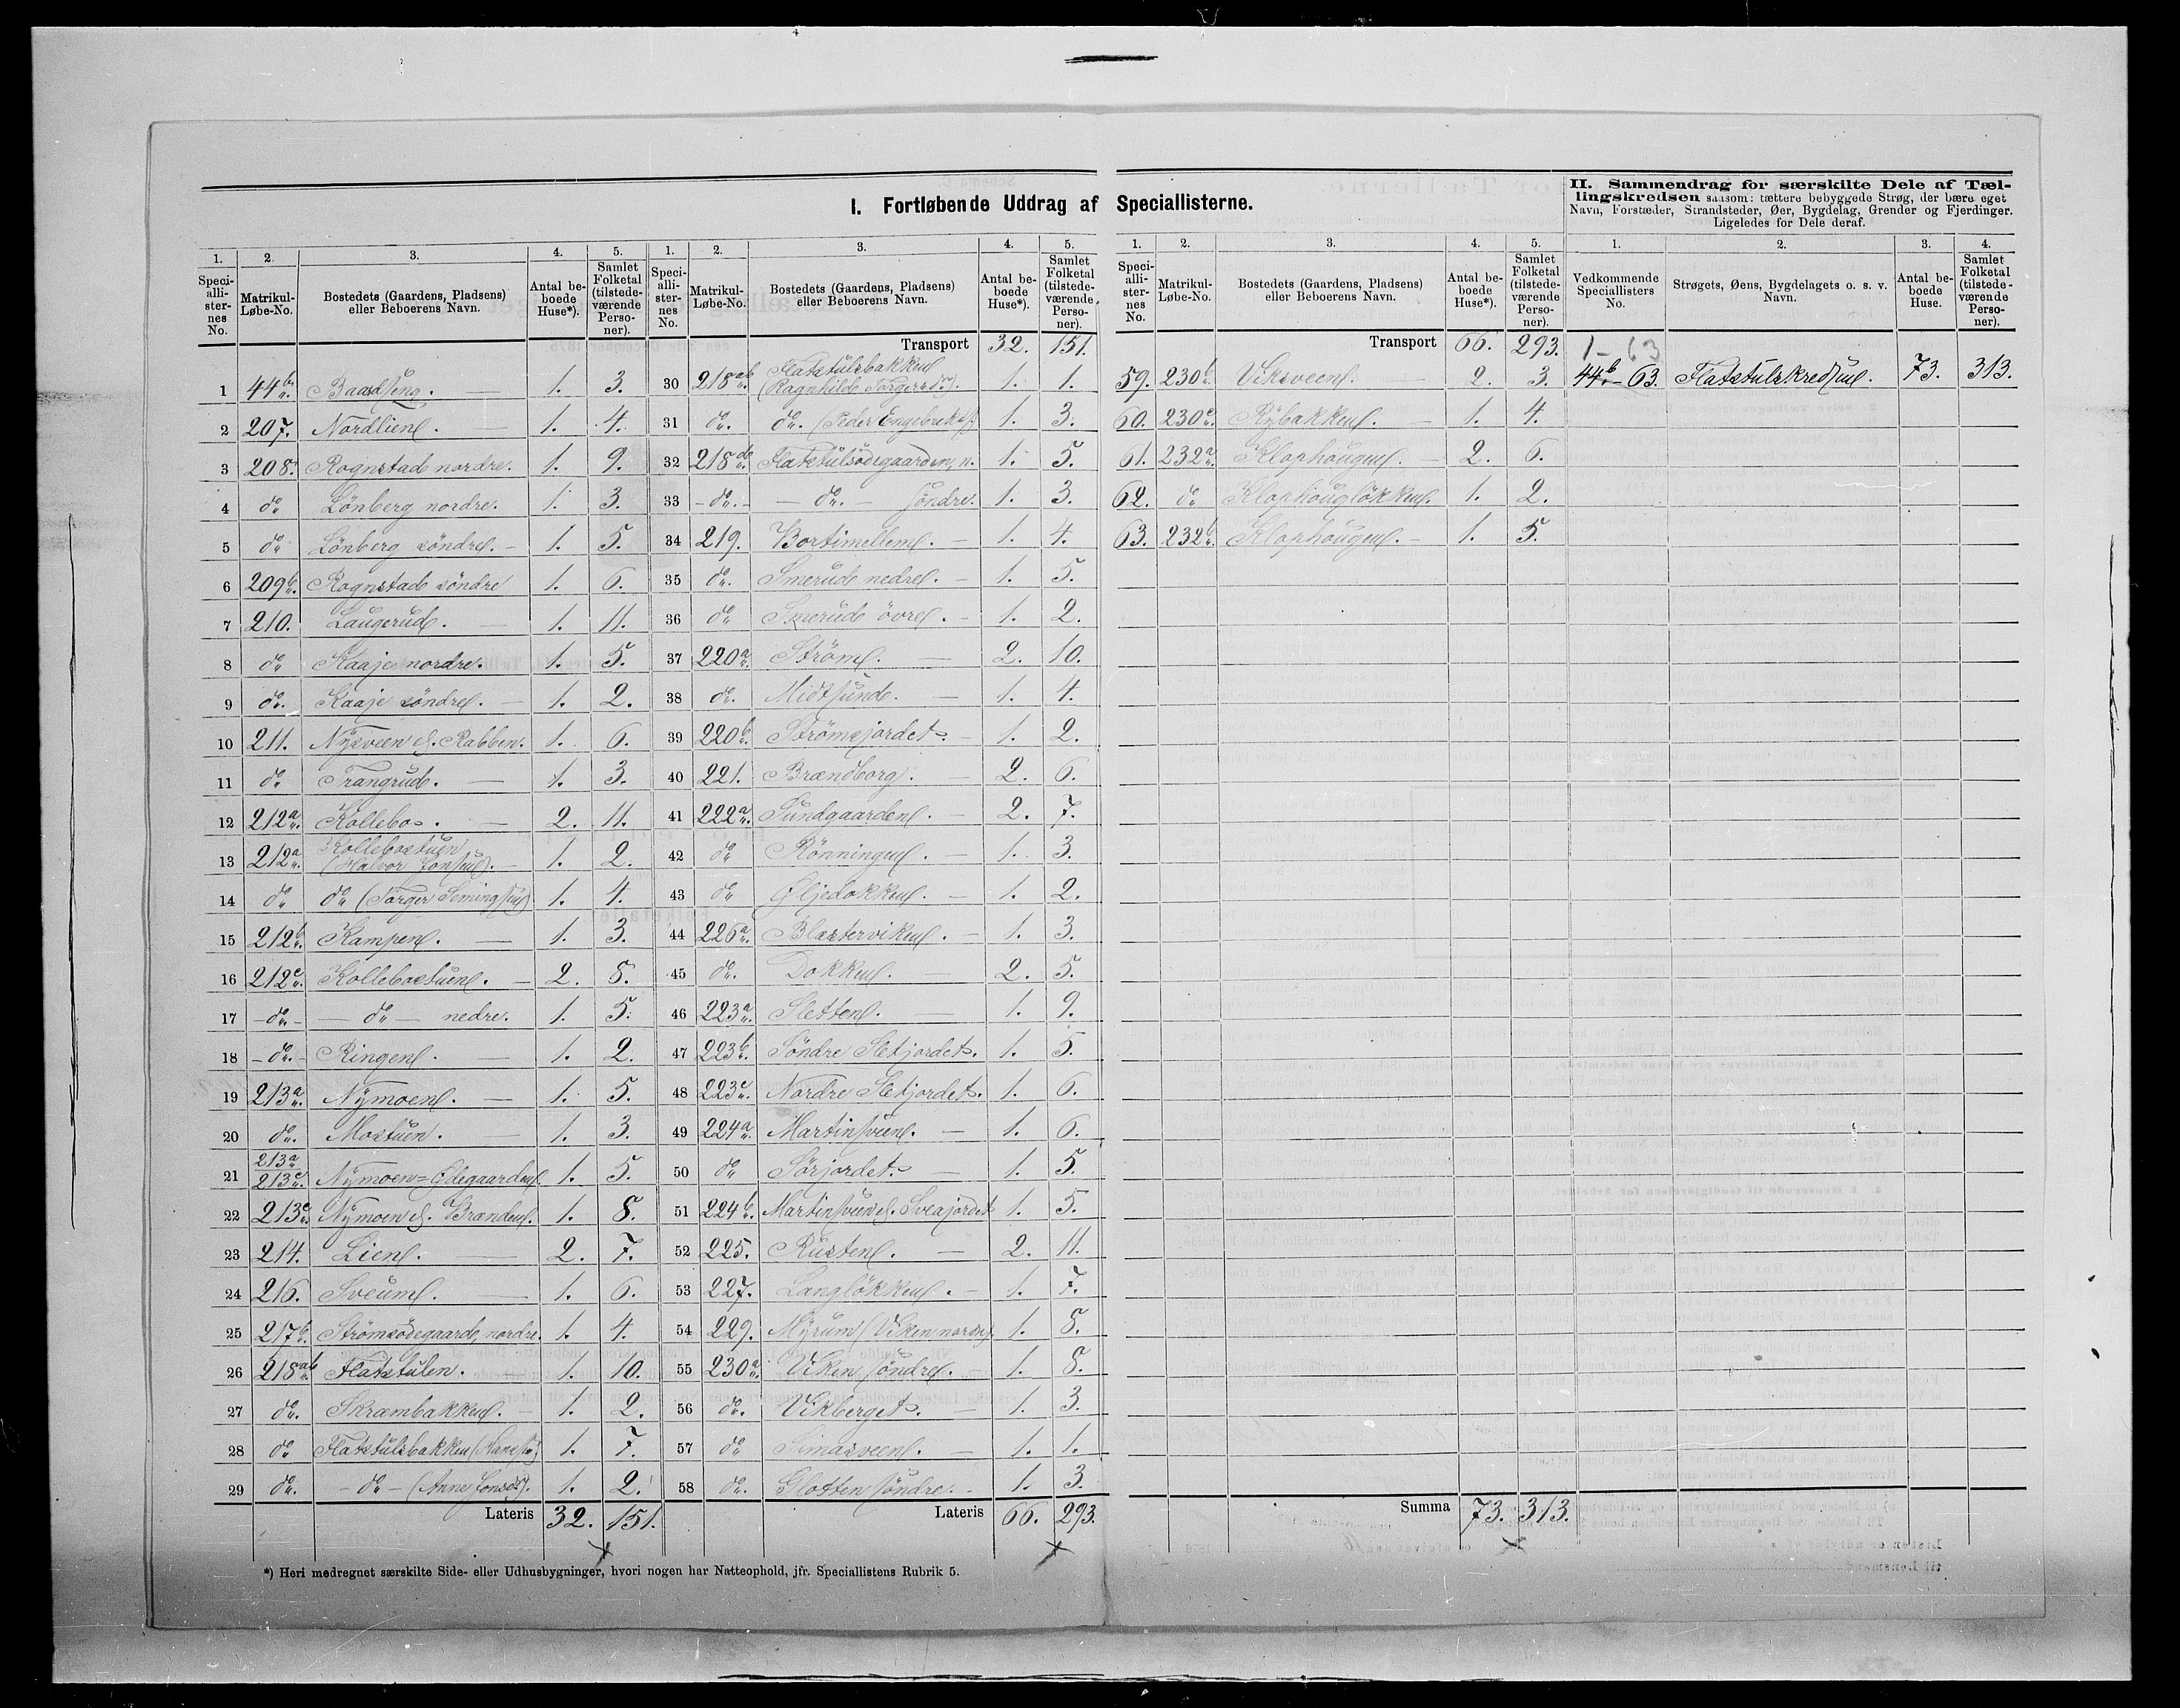 I. Fortløbende Uddrag af Speciallisterne.
II. Sammendrag for særskilte Dele af Tæl-
lingskredsen saasom: tættere bebyggede Strøg, der bære eget
Navn, Forstæder, Strandsteder, Øer, Bygdelag, Grender og Fjerdinger.
Ligeledes for Dele deraf.
1. 2. 3. 4. 5.
Speciallisternes No. Matrikul-Løbe-No. Bostedets (Gaardens, Pladsens) eller Beboerens Navn. Antal beboede Huse*). Samlet Folketal (tilstedeværende Personer).
1 44b. Baardseng. 1. 3.
2 207. Nordlien. 1. 4.
3 208. Rognstad nordre. 1. 9.
4 do Lönberg nordre. 1. 3.
5 do Lönberg söndre. 1. 5.
6 209b. Rognstad söndre 1. 6.
7 210. Laugerud. 1. 11.
8 do Kaaje nordre. 1. 5.
9 do. Kaaje söndre. 1. 2.
10 211. Nysveen el. Rabben. 1. 6.
11 do Trangrud. 1. 3.
12 212a. Kollebo. 2. 11.
13 212a. Kollebostuen (Halvor Jonsen). 1. 2.
14 do do (Torger Semingsen) 1. 4.
15 212b. Kampen. 1. 3.
16 212c. Kollebostuen. 2. 8.
17 -do.- - do - nedre. 1. 5.
18 -do.- Ringen. 1. 2.
19 213a. Nymoen. 1. 5.
20 do. Mostuen. 1. 3.
21 213a 213c. Nymoen=Ödegaarden 1. 5.
22 213c. Nymoen el. Brænden. 1. 8.
23 214. Lien. 2. 7.
24 216. Sveum. 1. 6.
25 217b. Strömsödegaard nordre. 1. 4.
26 218ab Flatstulen. 1. 10.
27 do. Skrambakken. 1. 2.
28 do Flatstulsbakken 1. 7.
29 do. - do - (Anne Jonsdr). 1. 2.
Lateris 32. 151.
1. 2. 3. 4. 5.
Speciallisternes No. Matrikul-Løbe-No. Bostedets (Gaardens, Pladsens) eller Beboerens Navn. Antal beboede Huse*). Samlet Folketal (tilstedeværende Personer).
Transport 32. 151.
30 218ab. Flatstulsbakken (Ragnhild Torgersdr). 1. 1.
31 do. do. (Peder Engebrets.) 1. 3.
32 218 Flatstulsödegaarden, n. 1. 5.
33 -do.- - do. - söndre. 1. 3.
34 219. Bortimellem. 1. 4.
35 do. Smerud nedre. 1. 5.
36 do Smerud övre. 1. 2.
37 220a. Ström. 2. 10.
38 do. Midtsund. 1. 4.
39 220b. Strömsjordet. 1. 2.
40 221. Brændborg. 2. 6.
41 222a. Sundgaarden. 2. 7.
42 do Rönningen. 1. 3.
43 do Öljedokken. 1. 2.
44 226a. Blasterviken. 1. 3.
45 do. Dokken. 2. 5.
46 223a. Sletten. 1. 9.
47 223b. Söndre Sletjordet. 1. 5.
48 223c. Nordre Sletjordet. 1. 6.
49 224a. Martinsveen. 1. 6.
50 do Sörjordet. 1. 5.
51 224b. Martinsveen el. Sveajordet 1. 5.
52 225. Rusten. 2. 11.
53 227. Langlökken. 1. 7.
54 229. Myrum (Viken nordre) 1. 8.
55 230a. Viken söndre. 1. 8.
56 do. Vikberget. 1. 3.
57 do Simasveen. 1. 1.
58 do. Glotten söndre. 1. 3.
Lateris 66. 293.
1. 2. 3. 4. 5.
Speciallisternes No. Matrikul-Løbe-No. Bostedets (Gaardens, Pladsens) eller Beboerens Navn. Antal beboede Huse*). Samlet Folketal (tilstedeværende Personer).
Transport 66. 293.
59. 230b. Viksveen. 2. 3.
60. 230c. Rybakken. 1. 4.
61. 232a. Klophougen. 2. 6.
62. do Klophouglökken. 1. 2.
63. 232b. Klophougen. 1. 5.
Summa 73. 313.
1. 2. 3. 4.
Vedkommende Speciallisters No. Strøgets, Øens, Bygdelagets o. s. v. Navn. Antal beboede Huse. Samlet Folketal (tilstedeværende Personer).
1-63
44b.-63. Flatstulskredsen. 73. 313.
*) Heri medregnet særskilte Side- eller Udhusbygninger, hvori nogen har Natteophold, jfr. Speciallistens Rubrik 5.